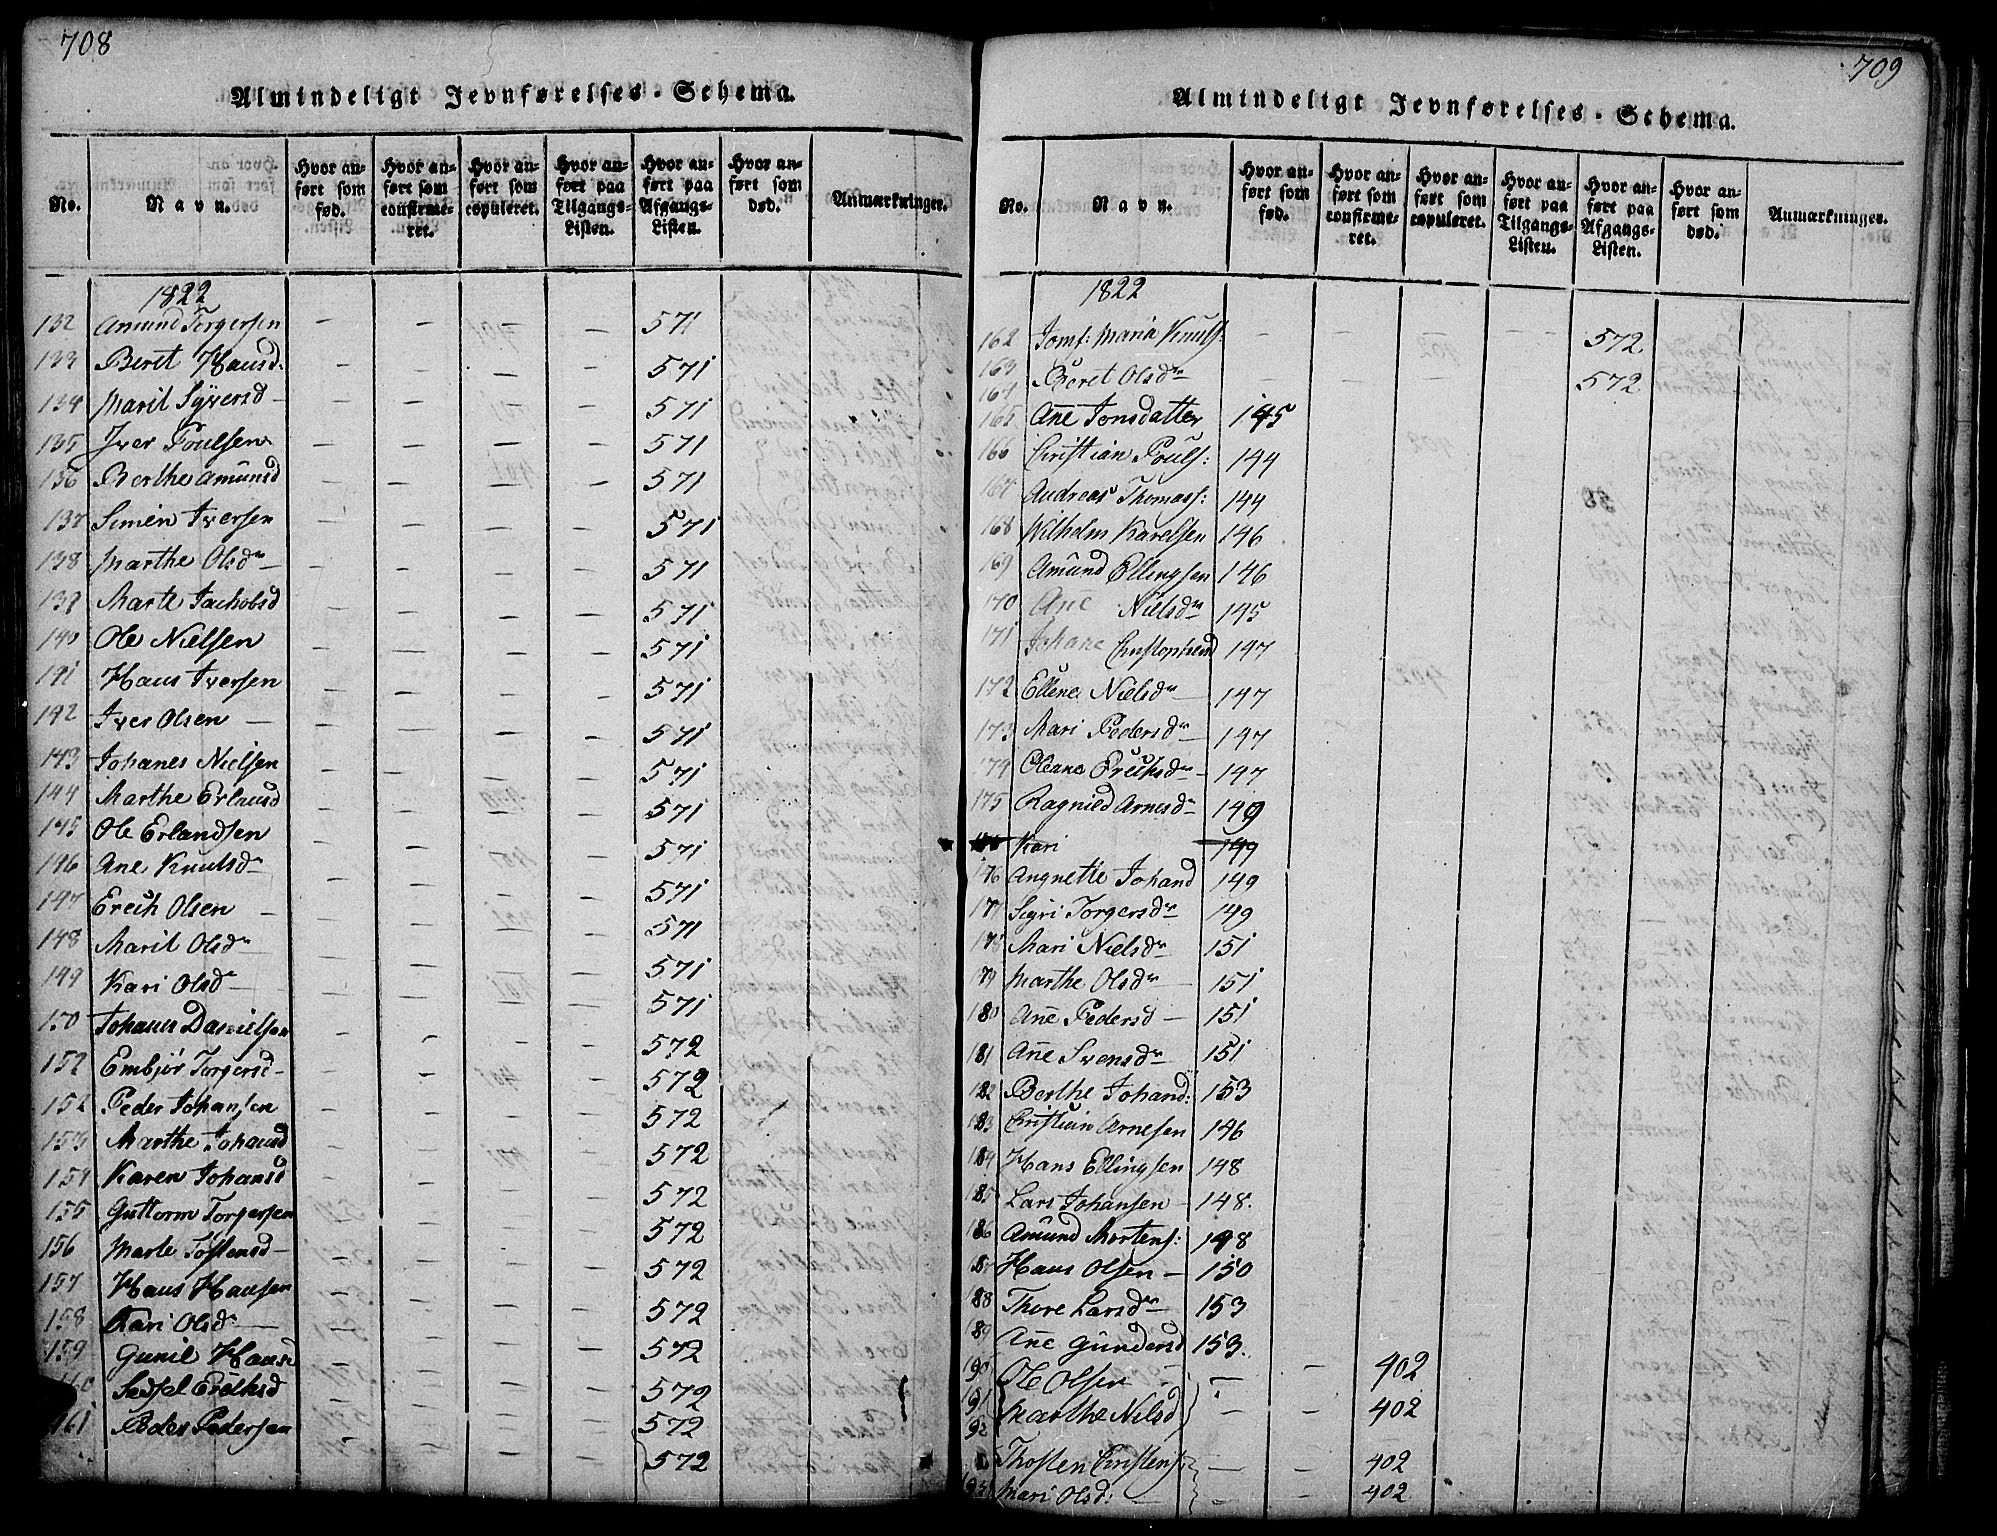 708
Almindeligt Jevnførelses-Schema.
No. | Navn. | Hvor anført som fød. | Hvor anført som confirmeret. | Hvor anført som copuleret. | Hvor anført paa Tilgangs-Listen. | Hvor anført paa Afgangs-Listen. | Hvor anført som død. | Anmærkninger.
1822
132 Amund Torgersen — — — — 571
133 Beret Hansd: — — — — 571
134 Marit Syversd — — — — — 571
135 Iver Poulsen — — — — 571
136 Berthe Amunsd — — — — 571
137 Simen Iversen — — — — 571
138 Marthe Olsdr — — — — — 571
139 Marte Jachobsd — — — — 571
140 Ole Nielsen — — — — 571
141 Hans Iversen — — — — 571
142 Iver Olsen — — — — — 571
143 Johanes Nielsen — — — — 571
144 Marthe Erlansd — — — — 571
145 Ole Erlandsen — — — — 571
146 Ane Knutsdr — — — — 571
147 Erich Olsen — — — — — 571
148 Marit Olsdr — — — — 571
149 Kari Olsdr — — — — 571
150 Johanes Danielsen — — — — 572
152 Embjør Torgersd — — — — 572
152 Peder Johansen — — — — 572
153 Marthe Johansd — — — — 572
154 Karen Johansd — — — — 572
155 Guttorm Torgersen — — — — 572
156 Marte Tostensd — — — — — 572
157 Hans Hansen — — — — 572
158 Kari Olsdr — — — — 572
159 Gunil Hansd — — — — 572
160 Sedsel Erichsd — — — — 572
161 Peder Pedersen — — — — 572
709
Almindeligt Jevnførelses-Schema.
No. | Navn. | Hvor anført som fød. | Hvor anført som confirmeret. | Hvor anført som copuleret. | Hvor anført paa Tilgangs-Listen. | Hvor anført paa Afgangs-Listen. | Hvor anført som død. | Anmærkninger.
1822
162 Jomf: Maria Knuts: — — — — 572
163 Beret Olsdr — — — — 572
164
165 Ane Jonsdatter 145
166 Christian Pouls: 144
167 Andreas Thomass: 144
168 Wilhelm Karelsen 146
169 Amund Ellingsen 146
170 Ane Nielsdr 145
171 Johane Christophersd 147
172 Ellene Nielsdr — 147
173 Mari Pedersdr — 147
174 Oleane Erichsdr — 147
175 Ragnild Arnesdr 149
Kari 149
176 Angnette Johand 149
177 Sigri Torgersdr 149
178 Mari Nielsdr 151
179 Marthe Olsdr — 151
180 Ane Pedersd — 151
181 Ane Svensdr 151
182 Berthe Johand: 153
183 Christian Arnesen 146
184 Hans Ellingsen 148
185 Lars Johansen — 148.
186 Amund Mortens: 148
187 Hans Olsen — 150
188 Thore Larsdr 153
189 Ane Gundersd 153.
190 Ole Olsen — — 402
191 Marthe Nilsd — — 402
92
Thosten Christens: — — 402
193 Mari Olsd: — — 402